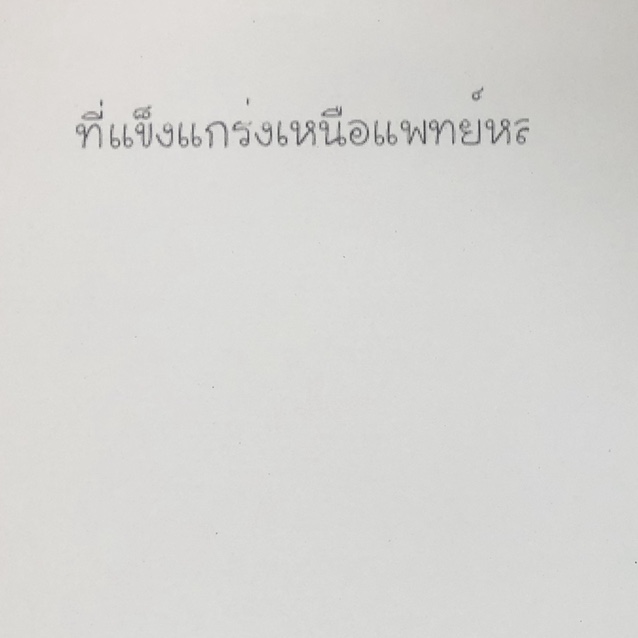 ที่แข็งแกร่งเหนือแพทย์หล